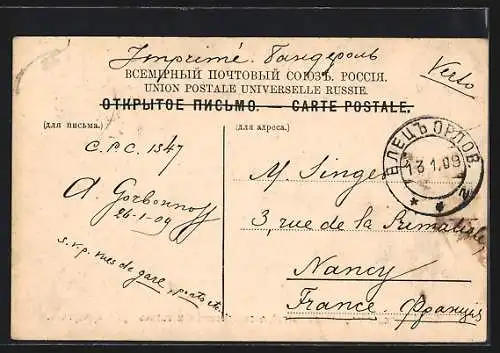 Imprimé. Бандероль
Verto
ВСЕМІРНЫЙ ПОЧТОВЫЙ СОЮЗЪ. РОССІЯ.
UNION POSTALE UNIVERSELLE RUSSIE.
ОТКРЫТОЕ ПИСЬМО. — CARTE POSTALE.
(для письма.)
(для адреса.)
ЕЛЕЦЪ ОРЛОВ.
13.1.09
C.P.C. 1547
A. Gorbonnoff
26-1-09
s.v.p. vues de gare, ports etc.
M. Singer
3, rue de la Primatiale,
Nancy
France Франція